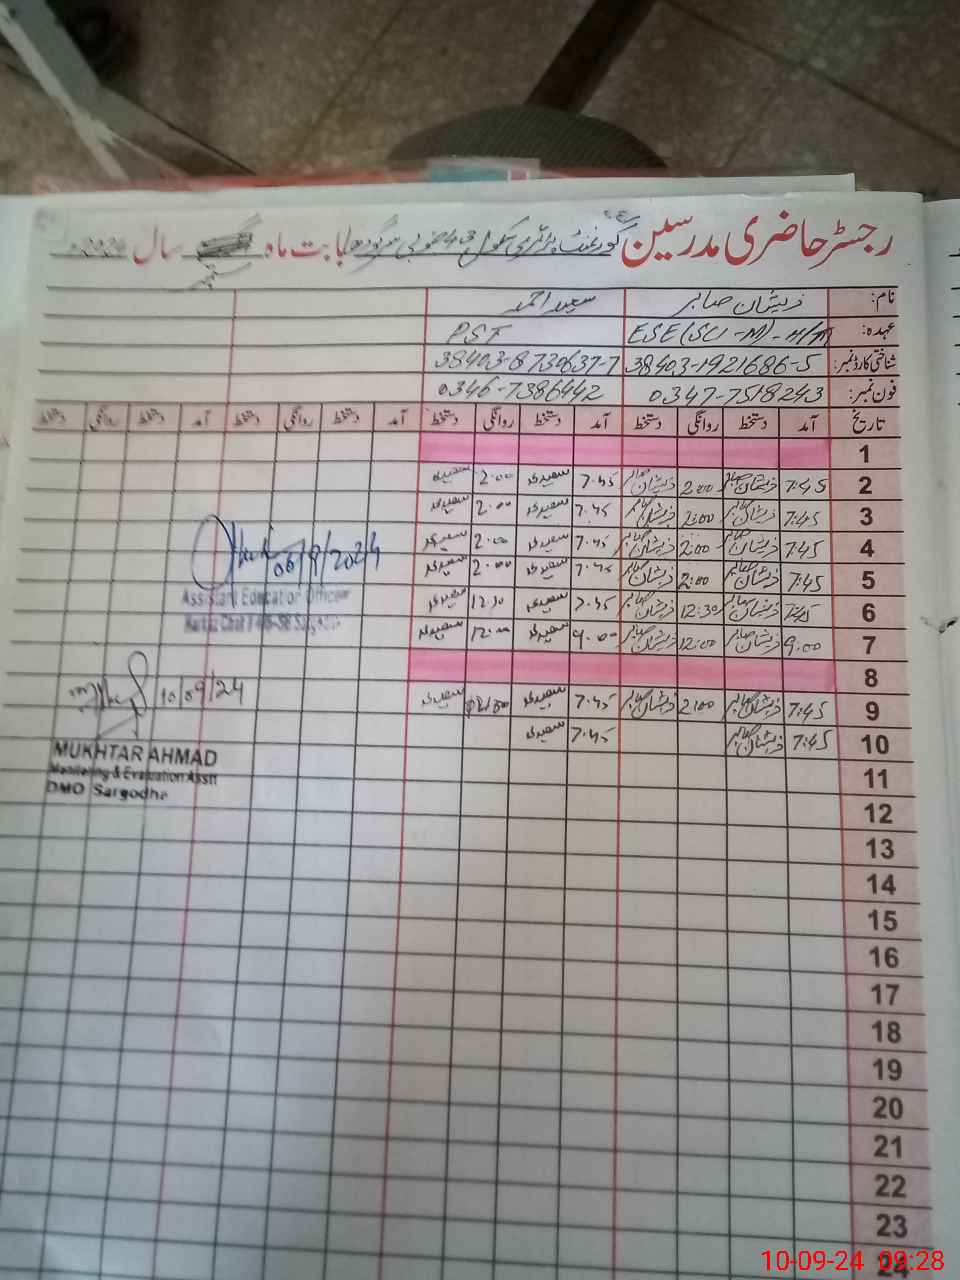 رجسٹر حاضری مدرسین گورنمنٹ پرائمری سکول جنوبی سرگودھا بابت ماہ ستمبر سال 2024
نام: ذیشان صابر سعید احمد
عہدہ: ESE (SCI-M)-H/M PST
شناختی کارڈ نمبر: 38403-1921686-5 38403-8730637-7
فون نمبر: 0347-7518243 0346-7386442
تاریخ آمد دستخط روانگی دستخط آمد دستخط روانگی دستخط آمد دستخط روانگی دستخط آمد دستخط روانگی دستخط
1
2 7:45 ذیشان صابر 2:00 ذیشان صابر 7.45 سعیدی 2.00 سعیدی
3 7:45 ذیشان صابر 2:00 ذیشان صابر 7.45 سعیدی 2.00 سعیدی
4 7:45 ذیشان صابر 2:00 ذیشان صابر 7.45 سعیدی 2.00 سعیدی
5 7:45 ذیشان صابر 2:00 ذیشان صابر 7.45 سعیدی 2.00 سعیدی
6 7:45 ذیشان صابر 12:30 ذیشان صابر 7.45 سعیدی سعیدی
7 9.00 ذیشان صابر 12:00 ذیشان صابر 9.00 سعیدی 12.00 سعیدی
8
9 7:45 ذیشان صابر 2:00 ذیشان صابر 7.45 سعیدی سعیدی
10 7:45 ذیشان صابر 7.45 سعیدی
11
12
13
14
15
16
17
18
19
20
21
22
23
24
06/9/2024
Assistant Education Officer
10/09/24
MUKHTAR AHMAD
Monitoring & Evaluation Asstt
DMO Sargodha
10-09-24 09:28